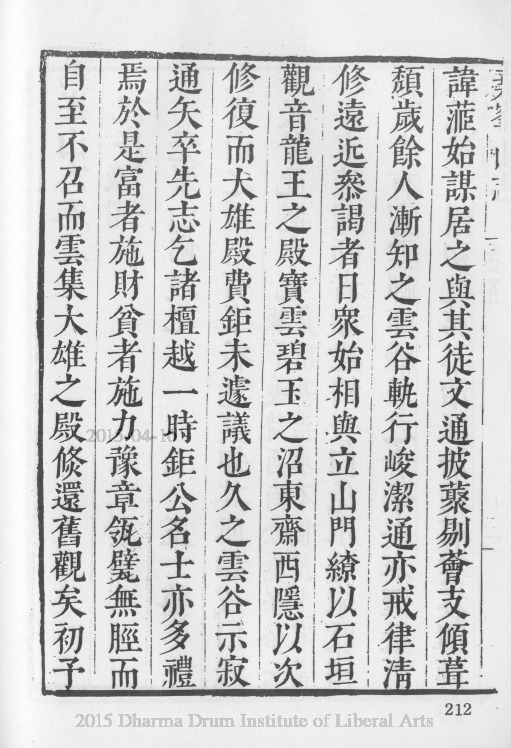 諱蒞始謀居之與其徒文通披蓁剔薈支傾葺
頹歲餘人漸知之雲谷軌行峻潔通亦戒律淸
修遠近叅謁者日衆始相與立山門繚以石垣
觀音龍王之殿寶雲碧玉之沼東齋西隱以次
修復而大雄殿費鉅未遽議也久之雲谷示寂
通矢卒先志乞諸檀越一時鉅公名士亦多禮
焉於是富者施財貧者施力豫章瓴甓無脛而
自至不召而雲集大雄之殿倐還舊觀矣初予
2015-04-1
212
2015 Dharma Drum Institute of Liberal Arts